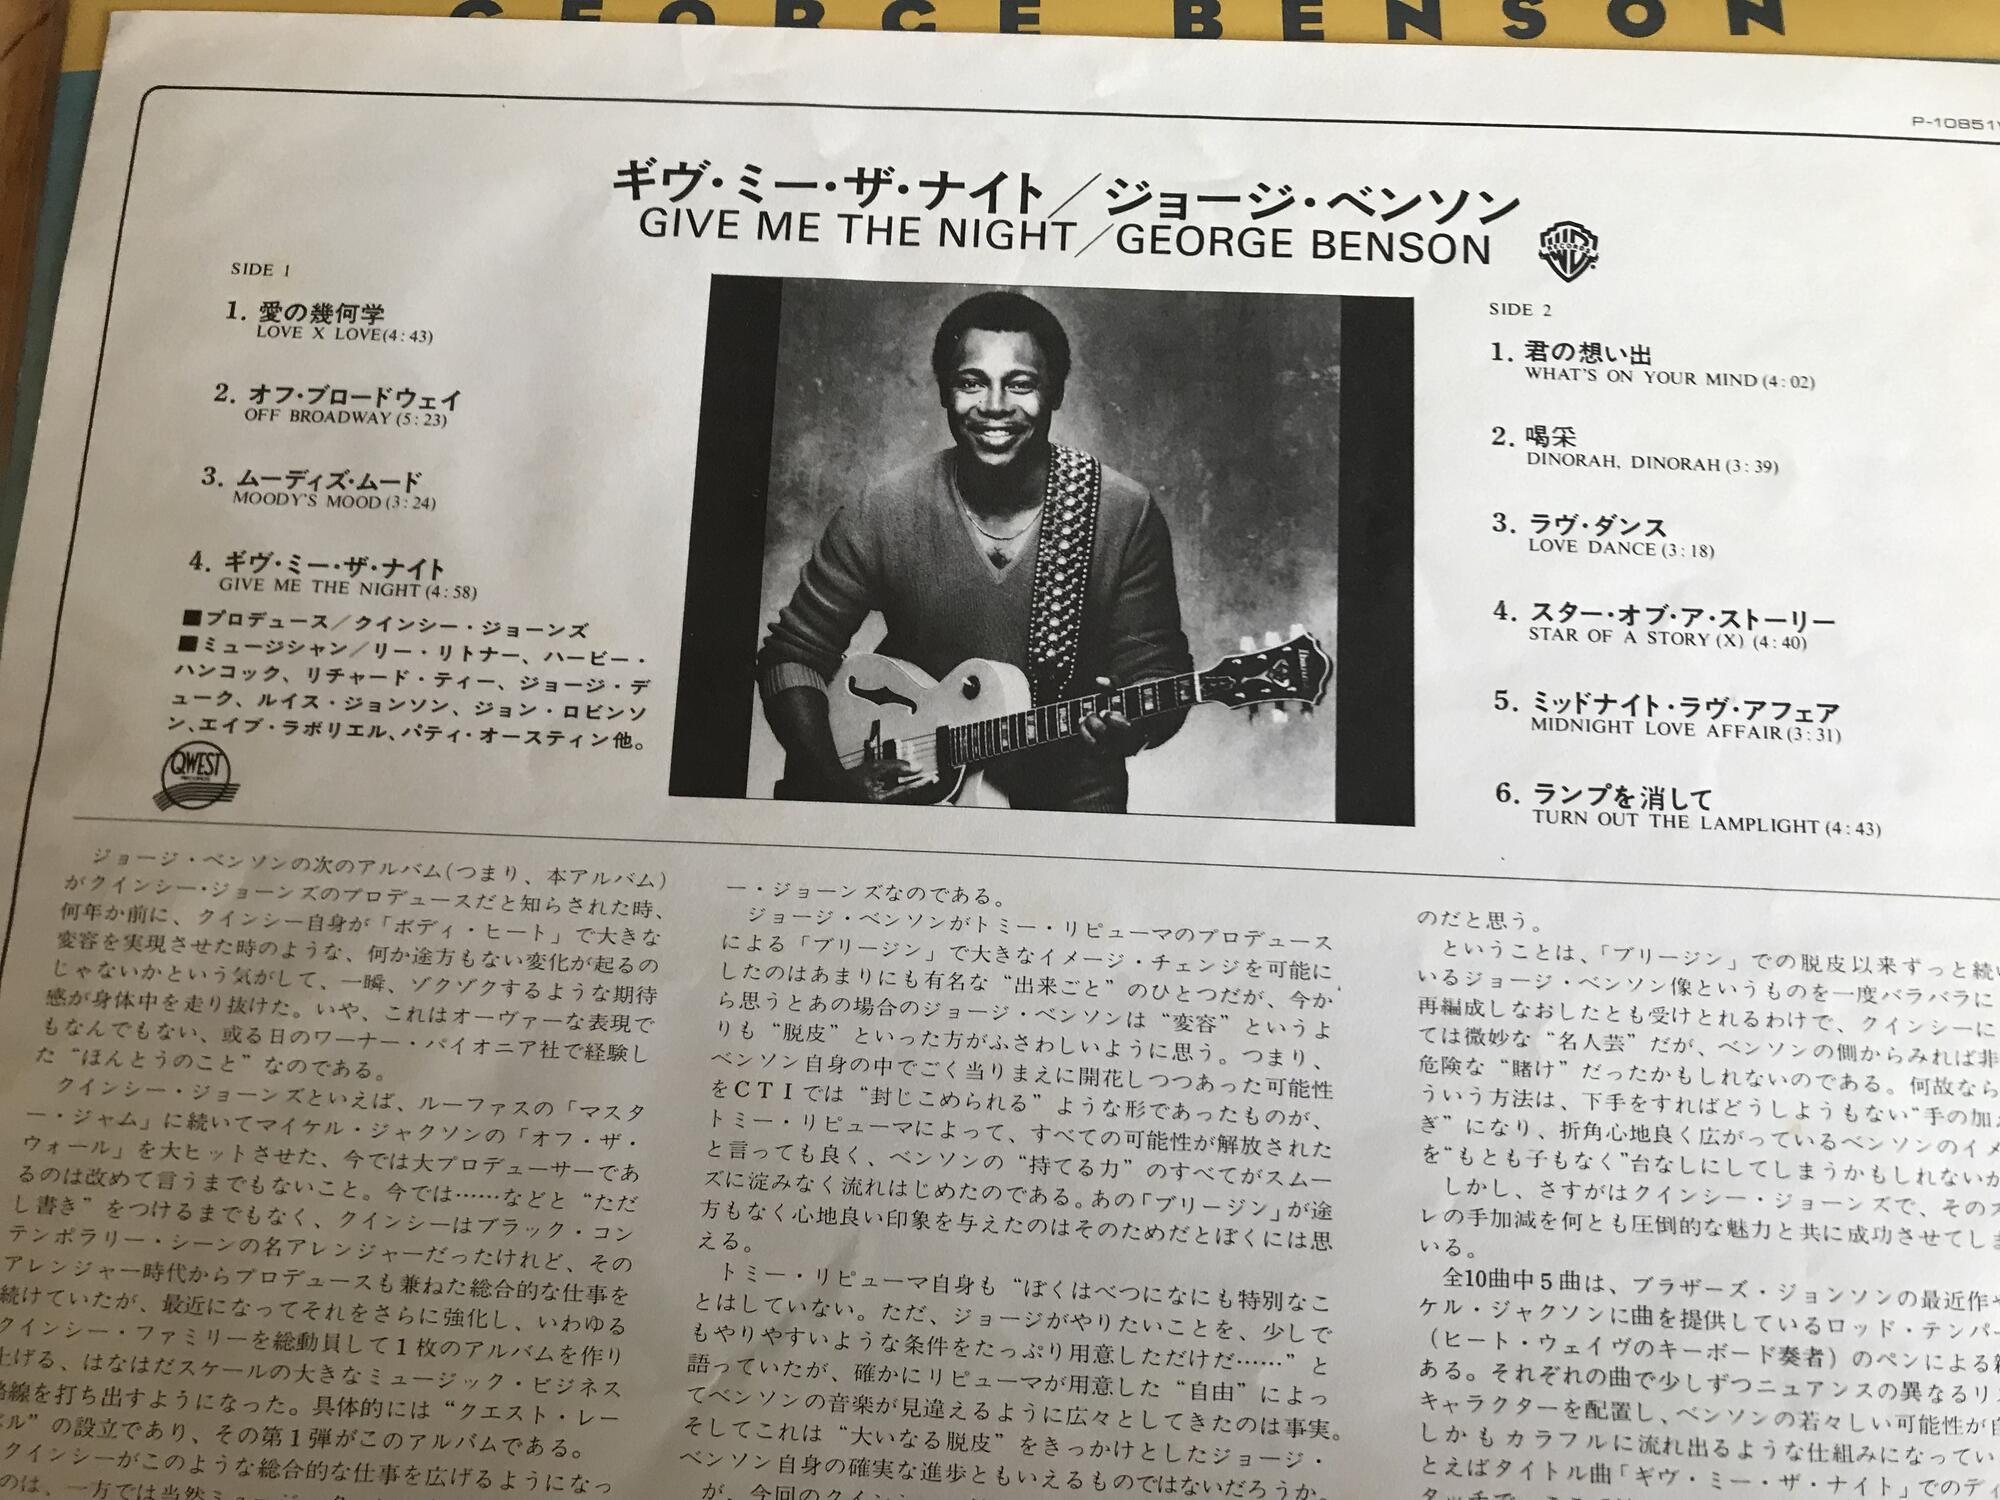 GEORGE BENSON
P-10851
ギヴ・ミー・ザ・ナイト／ジョージ・ベンソン
GIVE ME THE NIGHT／GEORGE BENSON
SIDE 1
1. 愛の幾何学
LOVE X LOVE(4:43)
2. オフ・ブロードウェイ
OFF BROADWAY(5:23)
3. ムーディズ・ムード
MOODY'S MOOD(3:24)
4. ギヴ・ミー・ザ・ナイト
GIVE ME THE NIGHT(4:58)
■プロデュース／クインシー・ジョーンズ
■ミュージシャン／リー・リトナー、ハービー・
ハンコック、リチャード・ティー、ジョージ・デ
ューク、ルイス・ジョンソン、ジョン・ロビンソ
ン、エイブ・ラボリエル、パティ・オースティン他。
QWEST
RECORDS
Ibanez
RECORDS
SIDE 2
1. 君の想い出
WHAT'S ON YOUR MIND(4:02)
2. 喝采
DINORAH, DINORAH(3:39)
3. ラヴ・ダンス
LOVE DANCE(3:18)
4. スター・オブ・ア・ストーリー
STAR OF A STORY(X) (4:40)
5. ミッドナイト・ラヴ・アフェア
MIDNIGHT LOVE AFFAIR(3:31)
6. ランプを消して
TURN OUT THE LAMPLIGHT(4:43)
ジョージ・ベンソンの次のアルバム(つまり、本アルバム)
がクインシー・ジョーンズのプロデュースだと知らされた時、
何年か前に、クインシー自身が「ボディ・ヒート」で大きな
変容を実現させた時のような、何か途方もない変化が起るの
じゃないかという気がして、一瞬、ゾクゾクするような期待
感が身体中を走り抜けた。いや、これはオーヴァーな表現で
もなんでもない、或る日のワーナー・パイオニア社で経験し
た“ほんとうのこと”なのである。
クインシー・ジョーンズといえば、ルーファスの「マスタ
ー・ジャム」に続いてマイケル・ジャクソンの「オフ・ザ・
ウォール」を大ヒットさせた、今では大プロデューサーであ
るのは改めて言うまでもないこと。今では……などと“ただ
し書き”をつけるまでもなく、クインシーはブラック・コン
テンポラリー・シーンの名アレンジャーだったけれど、その
アレンジャー時代からプロデュースも兼ねた総合的な仕事を
続けていたが、最近になってそれをさらに強化し、いわゆる
クインシー・ファミリーを総動員して1枚のアルバムを作り
上げる、はなはだスケールの大きなミュージック・ビジネス
路線を打ち出すようになった。具体的には“クエスト・レー
ベル”の設立であり、その第1弾がこのアルバムである。
クインシーがこのような総合的な仕事を広げるようになっ
のは、一方では当然
ー・ジョーンズなのである。
ジョージ・ベンソンがトミー・リピューマのプロデュース
による「ブリージン」で大きなイメージ・チェンジを可能に
したのはあまりにも有名な“出来ごと”のひとつだが、今か
ら思うとあの場合のジョージ・ベンソンは“変容”というよ
りも“脱皮”といった方がふさわしいように思う。つまり、
ベンソン自身の中でごく当りまえに開花しつつあった可能性
をCTIでは“封じこめられる”ような形であったものが、
トミー・リピューマによって、すべての可能性が解放された
と言っても良く、ベンソンの“持てる力”のすべてがスムー
ズに淀みなく流れはじめたのである。あの「ブリージン」が途
方もなく心地良い印象を与えたのはそのためだとぼくには思
える。
トミー・リピューマ自身も“ぼくはべつになにも特別なこ
とはしていない。ただ、ジョージがやりたいことを、少しで
もやりやすいような条件をたっぷり用意しただけだ……”と
語っていたが、確かにリピューマが用意した“自由”によっ
てベンソンの音楽が見違えるように広々としてきたのは事実。
そしてこれは“大いなる脱皮”をきっかけとしたジョージ・
ベンソン自身の確実な進歩ともいえるものではないだろうか。
が、今回のクイン
のだと思う。
ということは、「ブリージン」での脱皮以来ずっと続い
いるジョージ・ベンソン像というものを一度バラバラに
再編成しなおしたとも受けとれるわけで、クインシーに
ては微妙な“名人芸”だが、ベンソンの側からみれば非
危険な“賭け”だったかもしれないのである。何故なら
ういう方法は、下手をすればどうしようもない“手の加え
ぎ”になり、折角心地良く広がっているベンソンのイメ
を“もとも子もなく”台なしにしてしまうかもしれないか
しかし、さすがはクインシー・ジョーンズで、そのス
レの手加減を何とも圧倒的な魅力と共に成功させてしま
いる。
全10曲中5曲は、ブラザーズ・ジョンソンの最近作や
ケル・ジャクソンに曲を提供しているロッド・テンパー
（ヒート・ウェイヴのキーボード奏者）のペンによる
ある。それぞれの曲で少しずつニュアンスの異なるリズ
キャラクターを配置し、ベンソンの若々しい可能性が自
しかもカラフルに流れ出るような仕組みになってい
とえばタイトル曲「ギヴ・ミー・ザ・ナイト」でのディ